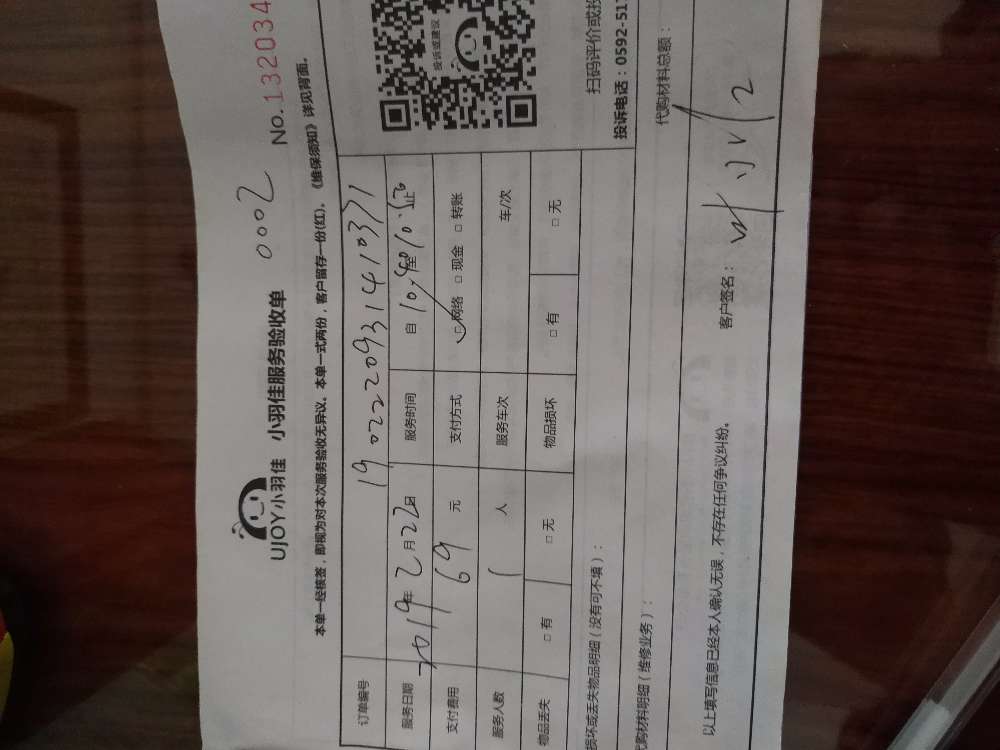 UJOY小羽佳 小羽佳服务验收单 0002 No.132034
本单一经核签，即视为对本次服务验收无异议。本单一式两份，客户留存一份(红)。《维保须知》详见背面。
订单编号 1902220931410371
服务日期 2019年2月22日 服务时间 自 止
支付费用 69元 支付方式 □网络 □现金 □转账
服务人数 1人 服务车次 车/次
物品丢失 □有 □无 物品损坏 □有 □无
投诉或建议
扫码评价或投
投诉电话：0592-517
损坏或丢失物品明细（没有可不填）：
代购材料明细（维修业务）：
代购材料总额：
以上填写信息已经本人确认无误，不存在任何争议纠纷。 客户签名：